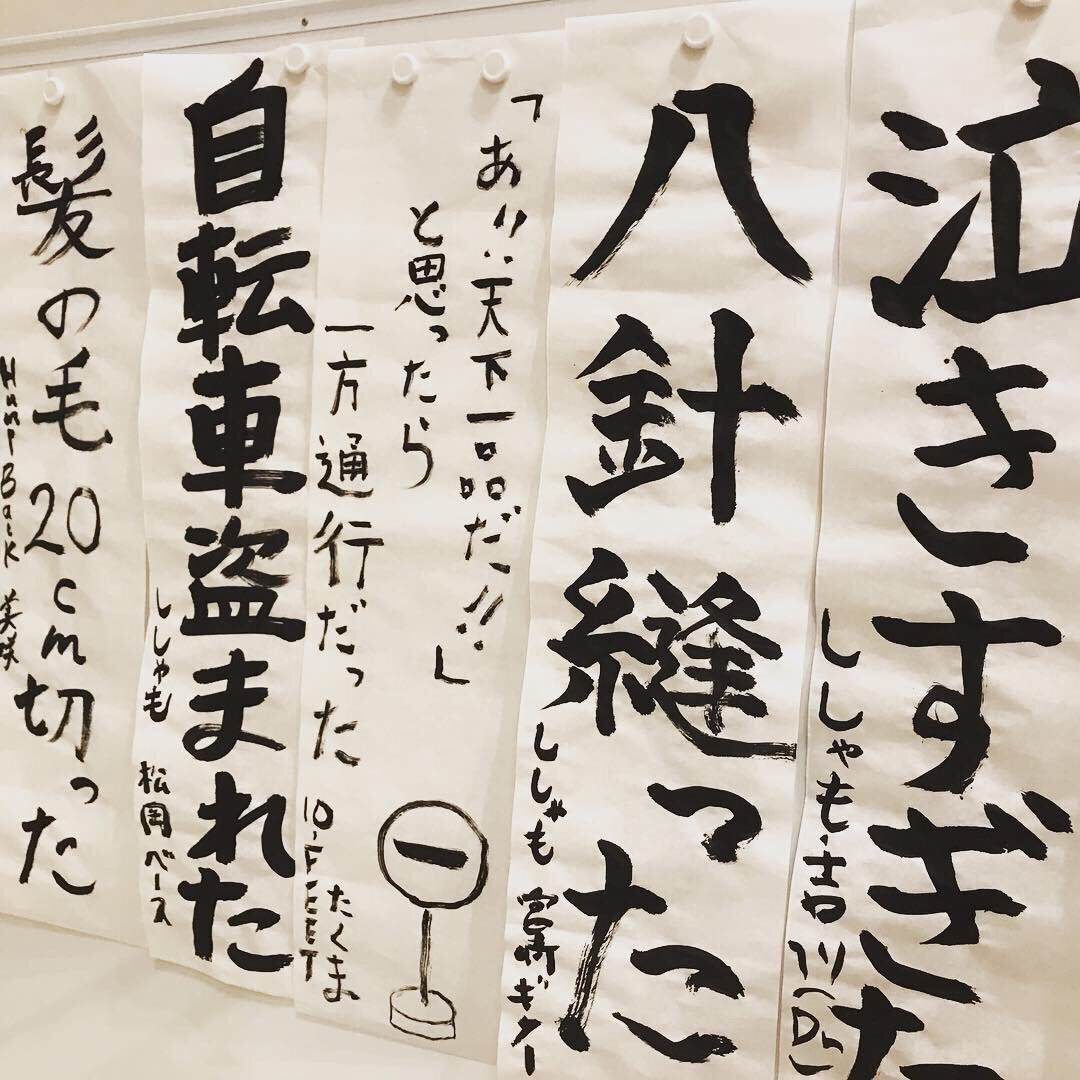 泣きすぎた
ししゃも・吉川(Dr)
八針縫った
ししゃも 宮崎ギター
「あ!!天下一品だ!!」
と思ったら
一方通行だった
10-FEET たくま
自転車盗まれた
ししゃも 松岡ベース
髪の毛20cm切った
Hump Back 美咲